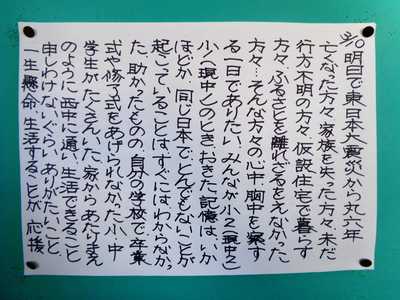 3/10 明日で東日本大震災から丸六年
亡くなった方々、家族を失った方々、未だ
行方不明の方々、仮設住宅で暮らす
方々、ふるさとを離れざるをえなかった
方々…そんな方々の心中、胸中を察す
る一日でありたい。みんなが小2(現中2)
小1(現中1)のとき、おきた記憶は、いか
ほどか。同じ日本でとんでもないことが
起こっていることは、すぐにはわからなかっ
た。助かったものの、自分の学校で卒業
式や修了式をあげられなかった小、中
学生がたくさんいた。家からあたりまえ
のように西中に通い、生活できること
申しわけないぐらいありがたいこと。
一生懸命生活することが、応援